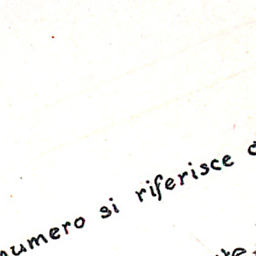 numero si riferisce